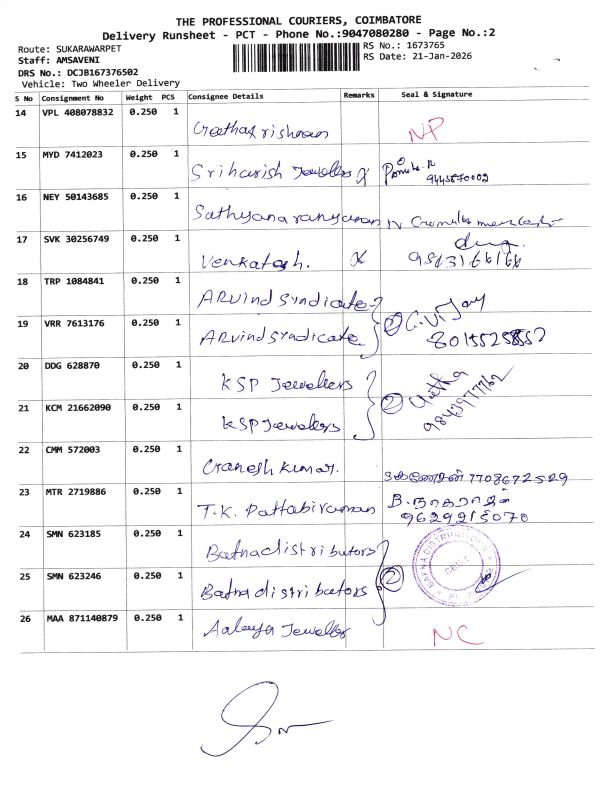 THE PROFESSIONAL COURIERS, COIMBATORE
Delivery Runsheet - PCT - Phone No.:9047080280 - Page No.:2
Route: SUKARAWARPET RS No.: 1673765
Staff: AMSAVENI RS Date: 21-Jan-2026
DRS No.: DCJB167376502
Vehicle: Two Wheeler Delivery
S No Consignment No Weight PCS Consignee Details Remarks Seal & Signature
14 VPL 408078832 0.250 1 Geethakrishnan NP
15 MYD 7412023 0.250 1 Sriharish Jewellers
16 NEY 50143685 0.250 1
17 SVK 30256749 0.250 1 Venkatesh. X
18 TRP 1084841 0.250 1 ARvind Syndicate
19 VRR 7613176 0.250 1 ARvind Syndicate 2
20 DDG 628870 0.250 1 KSP Jewellers
21 KCM 21662090 0.250 1 KSP Jewellers 2 9843977762
22 CMM 572003 0.250 1 Ganesh Kumar. கணேசன் 7708672529
23 MTR 2719886 0.250 1 T.K. Pattabiraman B. நாகராஜன்
9629215070
24 SMN 623185 0.250 1 Bafna distributors
25 SMN 623246 0.250 1 Bafna distributors 2 BAFNA DISTRIBUTORS
26 MAA 871140879 0.250 1 Aalaya Jeweller NC